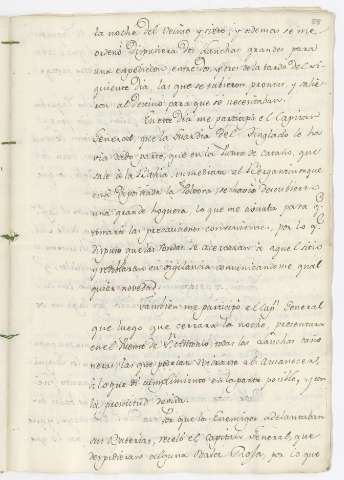 88
la noche del veinte y siete; y ademas se me
ordenó dispusiera dos lanchas grandes para
una expedicion, entre dos, y tres de la tarde del si-
guiente dia, las que se tubieron prontas, y salie-
ron al destino para que se necesitaban.
En este dia me participó el Capitan
General que la Guardia del Inglado le ha-
via dado parte, que en la Punta de Cataño, que
sale á la Bahia, inmediato al
esta depositada la Polvora, se havia descubierto
una grande hoguera, lo que me avisaba para q.e
tomara las precauciones convenientes, por lo q.e
dispuse que las rondas se acercaran a aquel sitio
y redoblaran su vigilancia comunicandome qual
quier novedad.
Tambien me participó el Cap.n General
que luego que cerrara la noche, presentara
en el Puente de S.n Antonio todas las Lanchas caño
neras, las que podrian retirarse al amanecer,
á lo que di cumplimiento en la parte posible, y con
la prontitud devida.
Por que los Enemigos adelantaban
sus Baterias, receló el Capitan General, que
despidieran alguna Bala Roja, por lo que